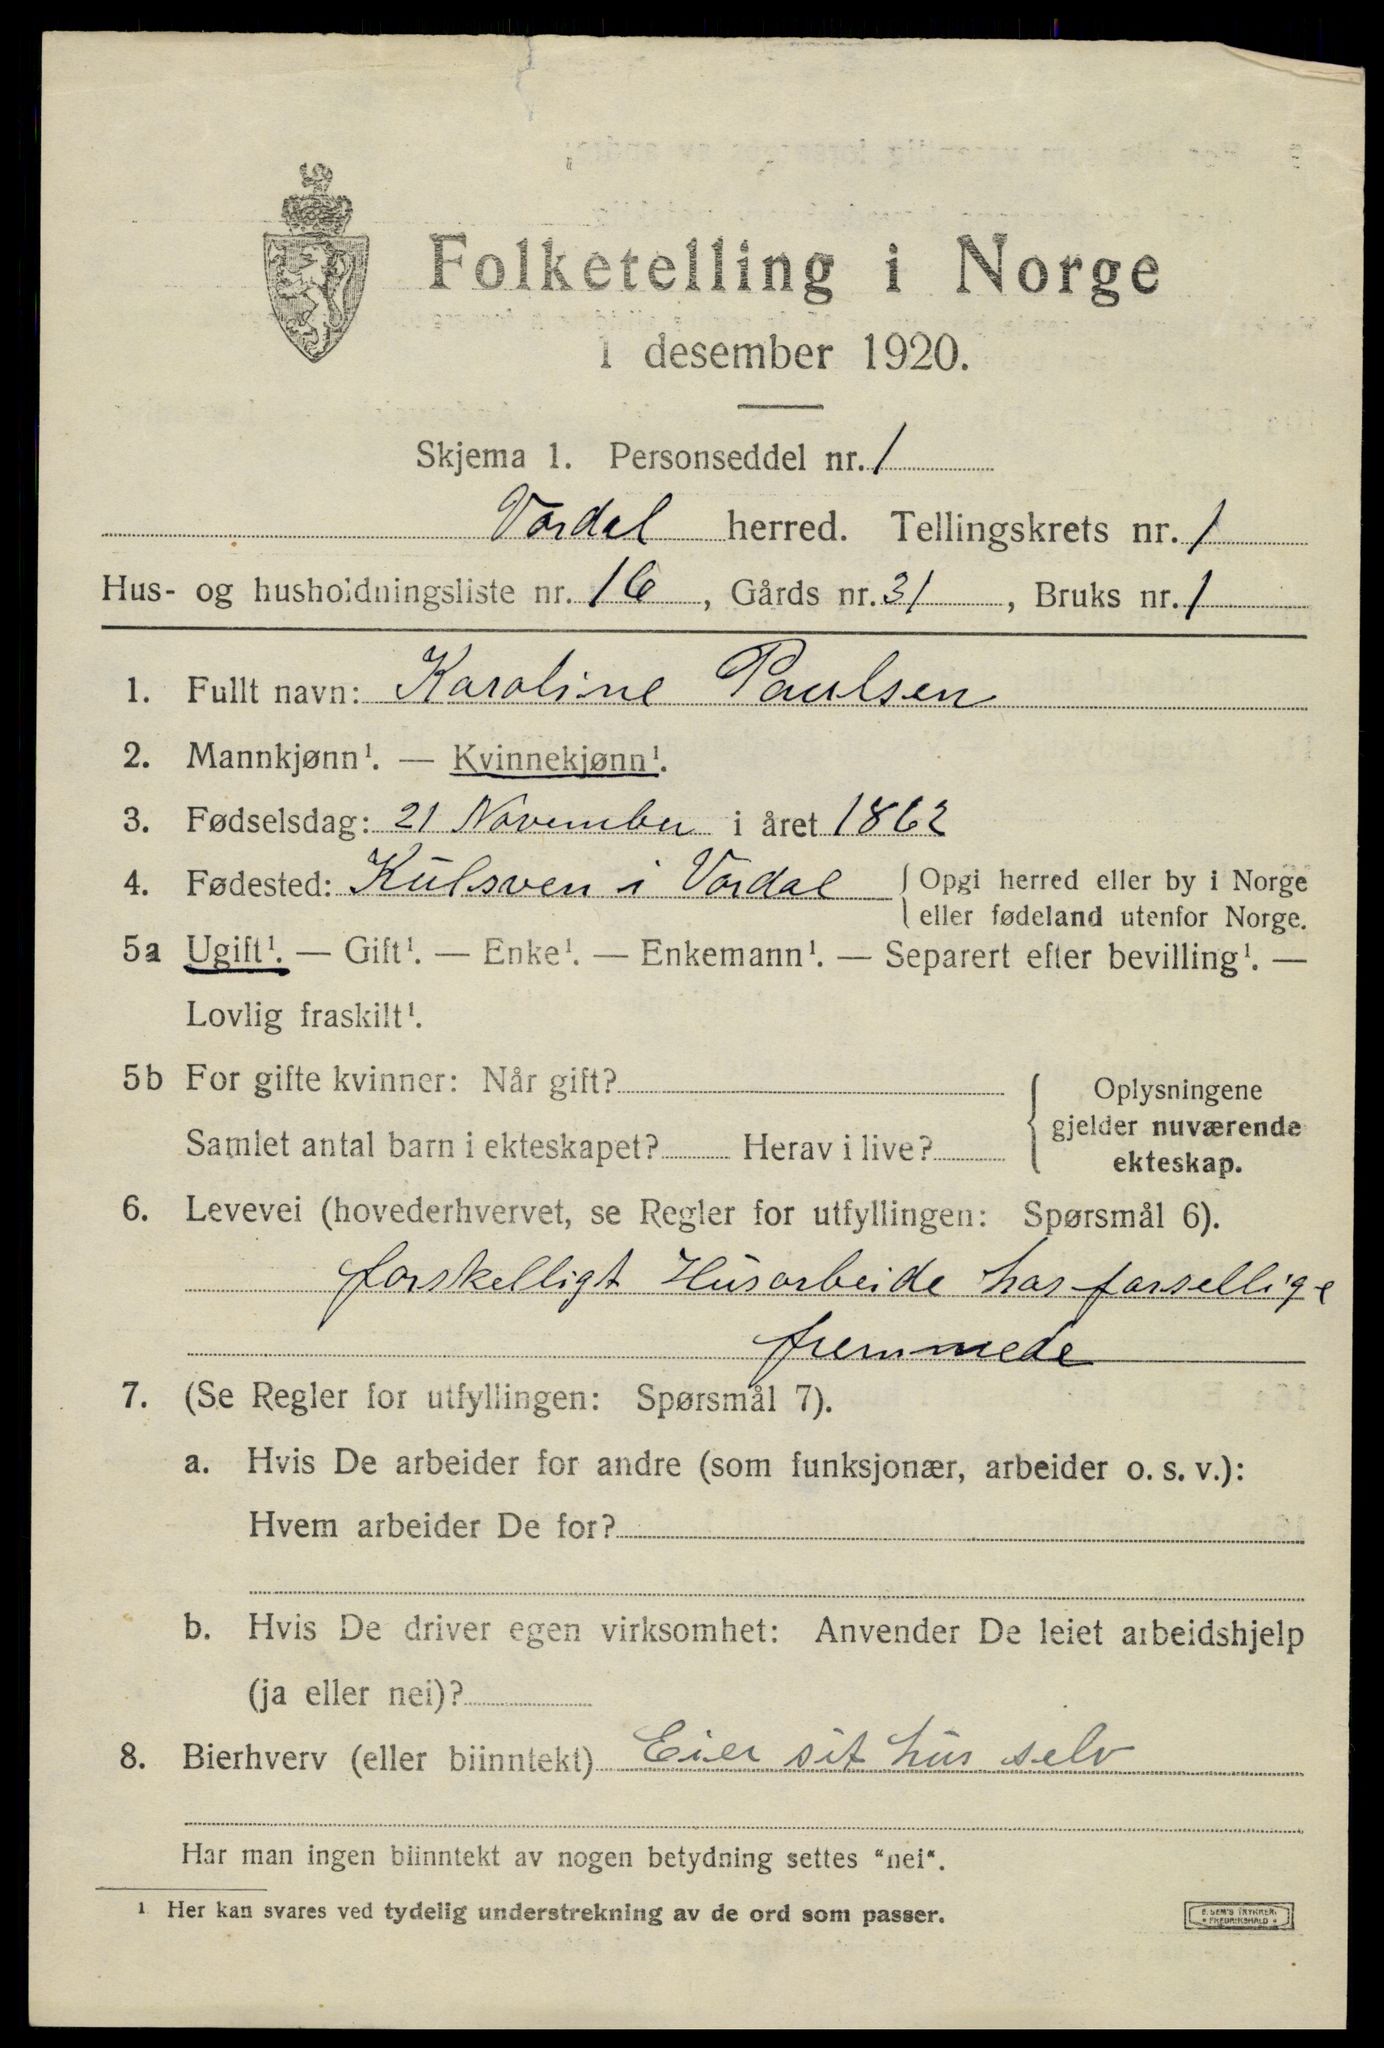 Folketelling i Norge
1 desember 1920.
Skjema 1. Personseddel nr. 1
Vardal herred. Tellingskrets nr. 1
Hus- og husholdningsliste nr. 16, Gårds nr. 31, Bruks nr. 1
1. Fullt navn: Karoline Paulsen
2. Mannkjønn¹. — Kvinnekjønn¹.
3. Fødselsdag: 21 November i året 1862
4. Fødested: Kulsven i Vardal { Opgi herred eller by i Norge
eller fødeland utenfor Norge.
5a Ugift¹. — Gift¹. — Enke¹. — Enkemann¹. — Separert efter bevilling¹. —
Lovlig fraskilt¹.
5b For gifte kvinner: Når gift?
Samlet antal barn i ekteskapet? Herav i live?
Oplysningene
gjelder nuværende
ekteskap.
6. Levevei (hovederhvervet, se Regler for utfyllingen: Spørsmål 6).
forskelligt Husarbeide hos forsellige
fremmede
7. (Se Regler for utfyllingen: Spørsmål 7).
a. Hvis De arbeider for andre (som funksjonær, arbeider o. s. v.):
Hvem arbeider De for?
b. Hvis De driver egen virksomhet: Anvender De leiet arbeidshjelp
(ja eller nei)?
8. Bierhverv (eller biinntekt) Eier sit hus selv
Har man ingen biinntekt av nogen betydning settes "nei".
¹ Her kan svares ved tydelig understrekning av de ord som passer.
E. SEM'S TRYKKERI
FREDRIKSHALD